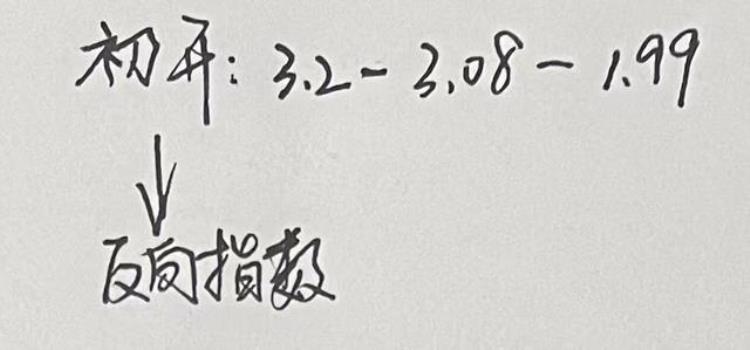 初开: 3.2-3.08-1.99
反向指数